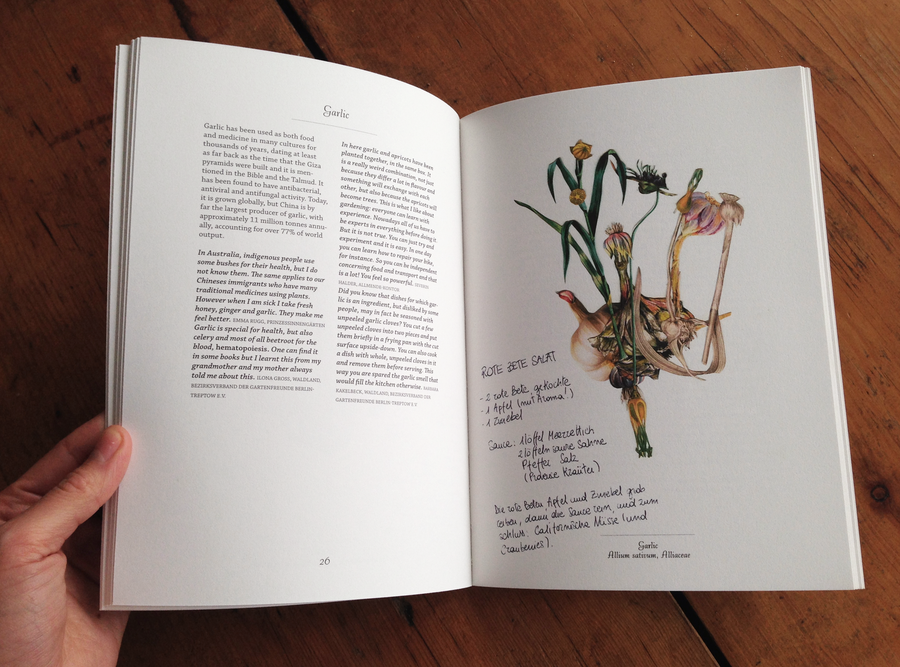 Garlic
Garlic has been used as both food
and medicine in many cultures for
thousands of years, dating at least
as far back as the time that the Giza
pyramids were built and it is men-
tioned in the Bible and the Talmud. It
has been found to have antibacterial,
antiviral and antifungal activity. Today,
it is grown globally, but China is by
far the largest producer of garlic, with
approximately 11 million tonnes annu-
ally, accounting for over 77% of world
output.
In Australia, indigenous people use
some bushes for their health, but I do
not know them. The same applies to our
Chineses immigrants who have many
traditional medicines using plants.
However when I am sick I take fresh
honey, ginger and garlic. They make me
feel better. EMMA RUGG, PRINZESSINNENGÄRTEN
Garlic is special for health, but also
celery and most of all beetroot for the
blood, hematopoiesis. One can find it
in some books but I learnt this from my
grandmother and my mother always
told me about this. ILONA GROSS, WALDLAND,
BEZIRKSVERBAND DER GARTENFREUNDE BERLIN-
TREPTOW E.V.
In here garlic and apricots have been
planted together, in the same box. It
is a really weird combination, not just
because they differ a lot in flavour and
something will exchange with each
other, but also because the apricots will
become trees. This is what I like about
gardening: everyone can learn with
experience. Nowadays all of us have to
be experts in everything before doing it.
But it is not true. You can just try and
experiment and it is easy. In one day
you can learn how to repair your bike,
for instance. So you can be independent
concerning food and transport and that
is a lot! You feel so powerful.
HALDER, ALLMENDE-KONTOR
Did you know that dishes for which gar-
lic is an ingredient, but disliked by some
people, may in fact be seasoned with
unpeeled garlic cloves? You cut a few
unpeeled cloves into two pieces and put
them briefly in a frying pan with the cut
surface upside-down. You can also cook
a dish with whole, unpeeled cloves in it
and remove them before serving. This
way you are spared the garlic smell that
would fill the kitchen otherwise. BARBARA
HAKELBECK, WALDLAND, BEZIRKSVERBAND DER
GARTENFREUNDE BERLIN-TREPTOW E.V.
26
ROTE BETE SALAT
- 2 rote Bete, gekochte
- 1 Apfel (mit Aroma!)
- 1 Zwiebel
Sauce: 1 löffel Meerrettich
2 löffeln saure Sahne
Pfeffer Salz
(Kräuter)
Die rote Beten, Apfel und Zwiebel grob
reiben, dann die Sauce rein, und zum
schluss: Californische Nüsse (und
Cranberries).
Garlic
Allium sativum, Alliaceae